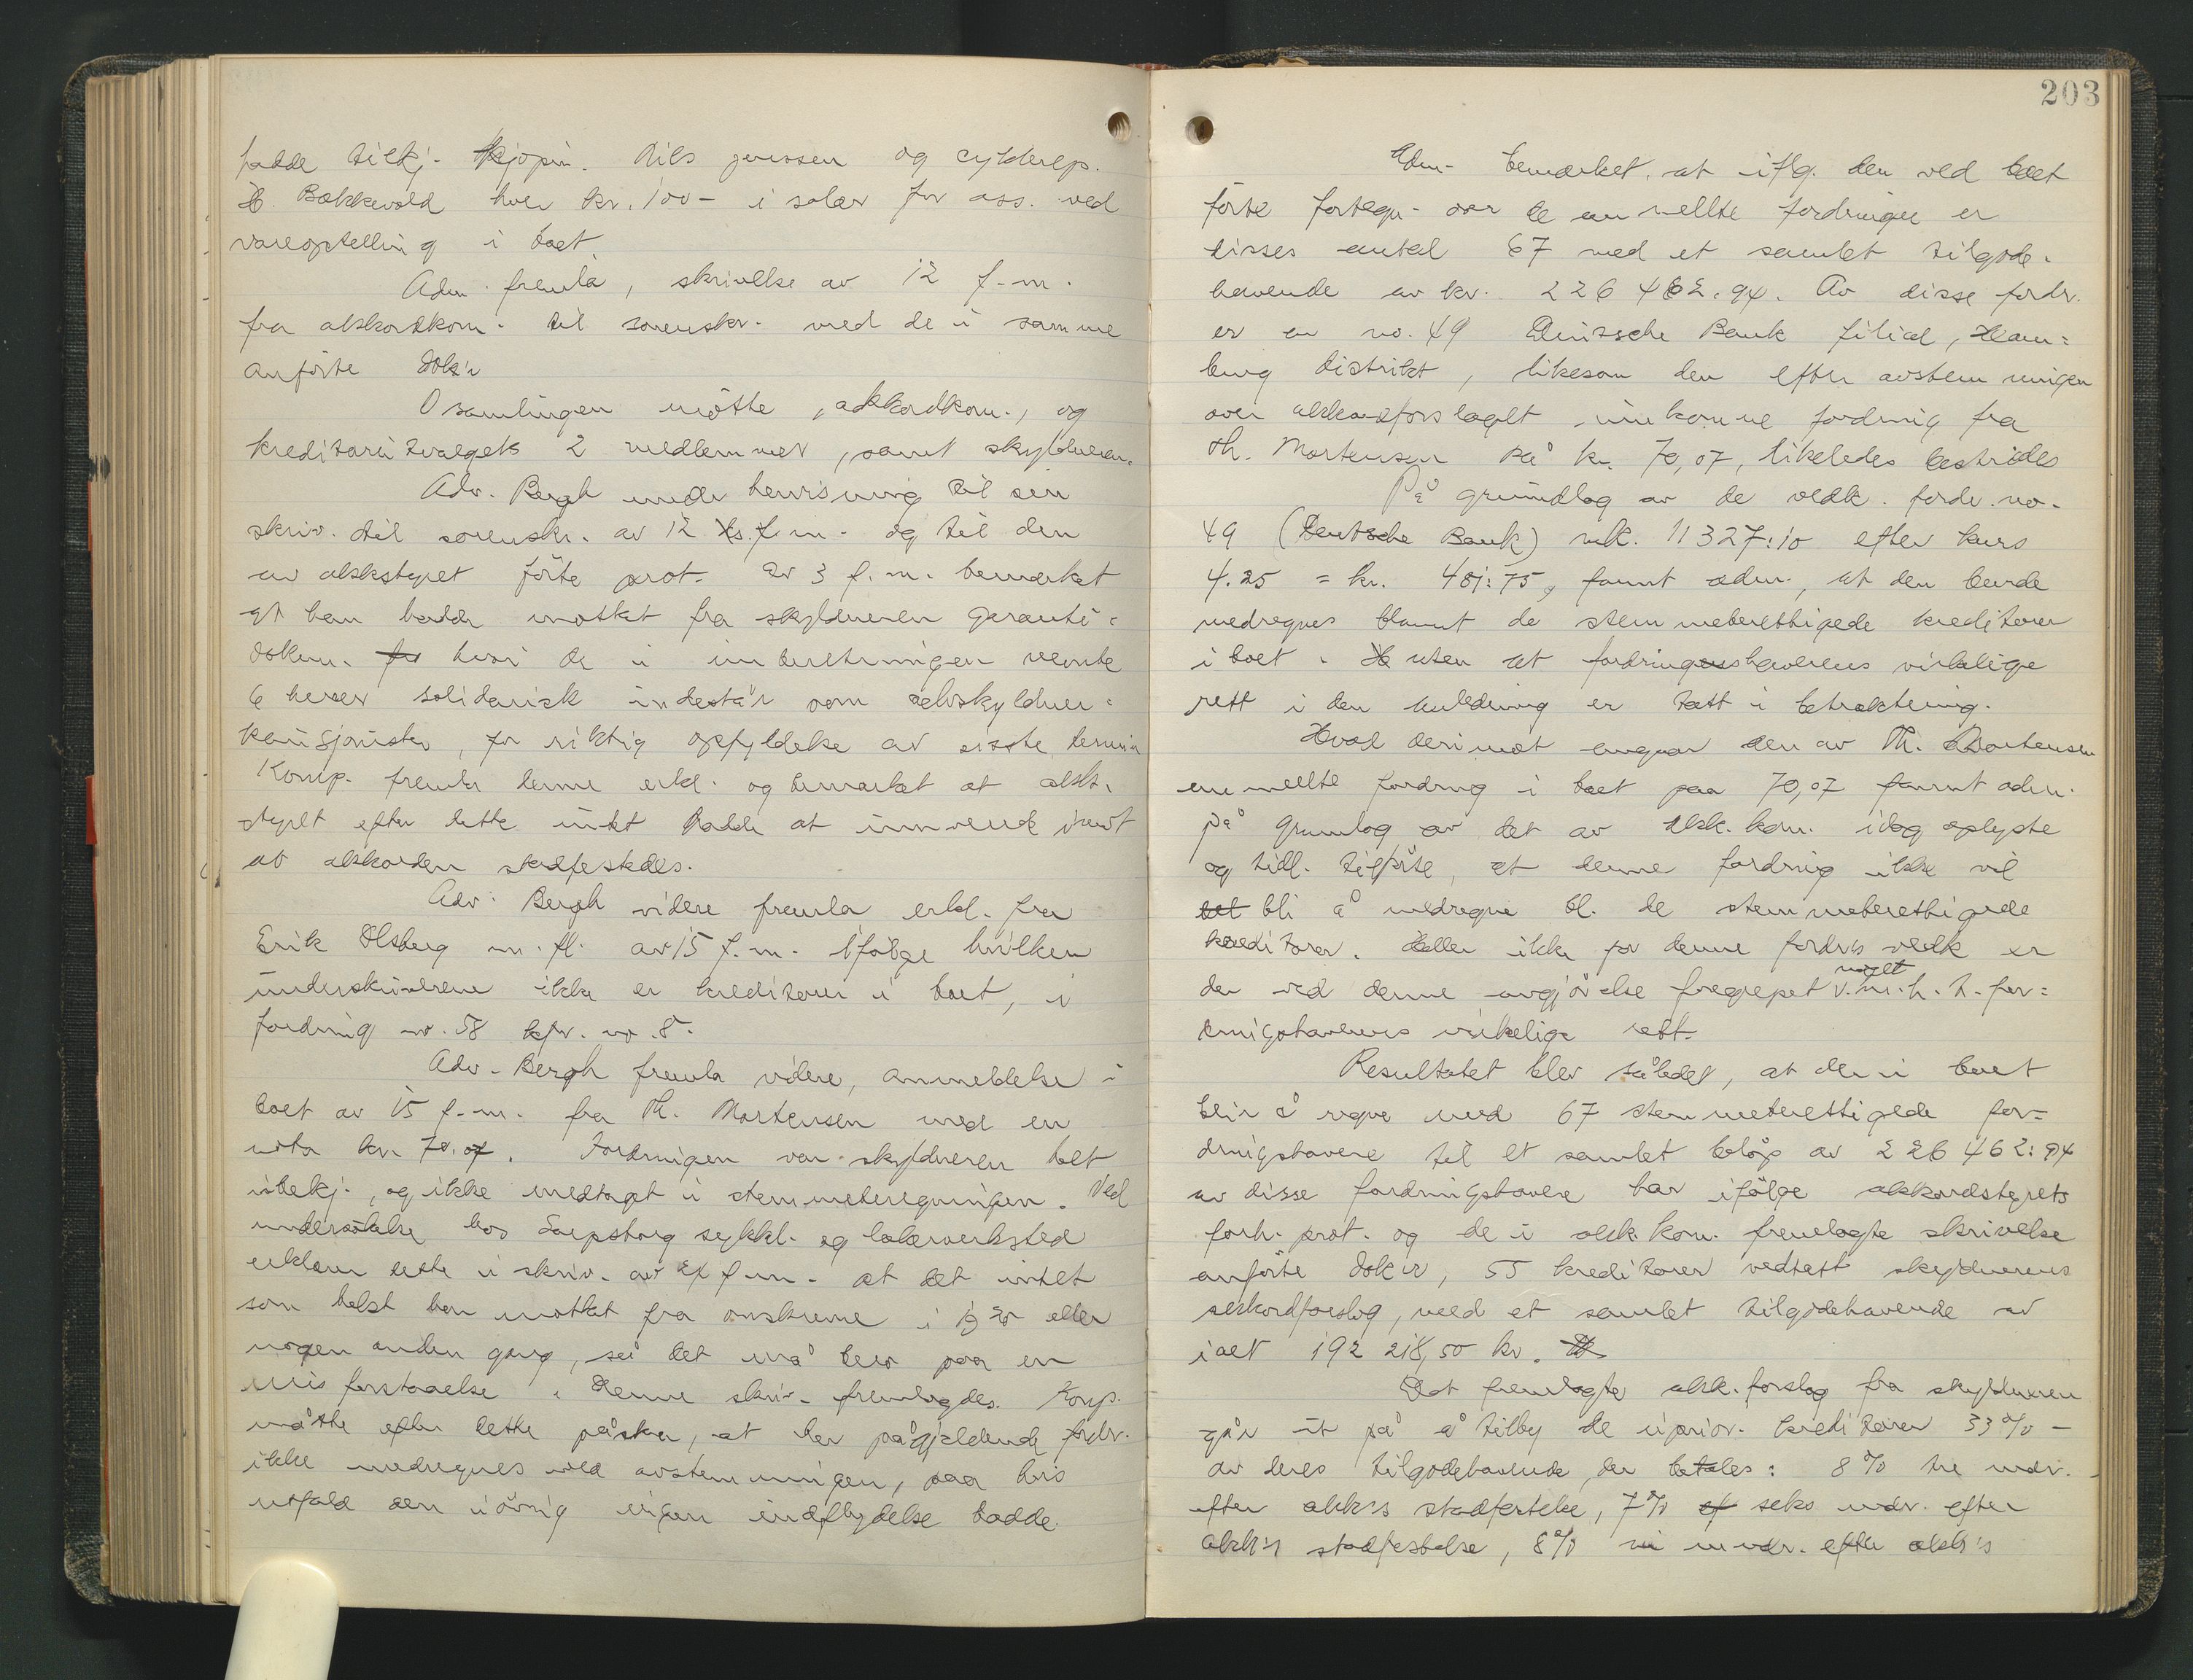 hadde tilkj. kjøpm. Nils Jenssen og cykkelrep.
H. Bækkevold hver kr. 100- i salær for ass. ved
vareoptelling i boet
Adm. fremla, skrivelse av 12 f.m.
fra akkordkom. til sorenskr. med de i samme
anførte dok'r
I samlingen møtte, akkordkom., og
kreditorutvalgets 2 medlemmer, samt skyldneren.
Adv. Bergh under henvisning til sin
skriv. til sorenskr. av 12 ds. f.m. og til den
av akkstyret førte prot. av 3 f.m. bemerket
at han hadde mottat fra skyldneren garanti-
dokum. hvori de i innberetningen nevnte
6 herrer solidarisk indestår som selvskyldner-
kausjonister, for riktig opfyldelse av siste termin
Komp. fremla denne erkl. og bemerket at akk.
styret efter dette intet hadde at innvende imot
at akkorden stadfestedes.
Adv. Bergh videre fremla erkl. fra
Erik Olsberg m. fl. av 15 f.m. ifølge hvilken
underskriverne ikke er kreditorer i boet, i
fordring no. 58 kfr. no. 8.
Adv. Bergh fremla videre, anmeldelse i
boet av 15 f.m. fra Th. Martensen med en
nota kr. 70.07. Fordringen var skyldneren helt
ubekj., og ikke medtaget i stemmeberegningen. Ved
undersøkelse hos Sarpsborg sykkel- og lakerverksted
erklærer dette i skriv. av f.m. at det intet
som helst har mottat fra ønskerne i 1920 eller
nogen anden gang, så det må bero paa en
misforstaaelse. Denne skriv. fremlagdes. Komp.
måtte efter dette påstaa, at den pågjeldende fordr.
ikke medregnes ved avstemningen, paa hvis
utfald den iøvrig ingen indflydelse hadde.
203
Adm. bemerket, at iflg. den ved boet
førte fortegn. over de anmeldte fordringer er
disses antal 67 med et samlet tilgode-
havende av kr. 226 462.94. Av disse fordr.
er en no. 49 Deutsche Bank filial, Ham-
burg distrikt, likesom den efter avstemningen
over akkordforslaget innkomne fordring fra
Th. Martensen på kr. 70,07, likeledes bestrides
På grundlag av de vedk. fordr. no.
49 (Deutsche Bank) mk. 11327:10 efter kurs
4.25 = kr. 481:75, fannt adm., at den burde
medregnes blannt de stemmeberettigede kreditorer
i boet. uten at fordringshaverens virkelige
rett i den anledning er tatt i betraktning.
Hvad derimot angaar den av Th. Martensen
anmeldte fordring i boet paa 70,07 fannt adm.
på grunnlag av det av akk. kom. idag oplyste
og tidl. tilførte, at denne fordring ikke vil
bli å medregne bl. de stemmeberettigede
kreditorer. Heller ikke for denne fordr's vedk er
der ved denne avgjørelse foregrepet noget v.m.h.t. for-
dringshaverens virkelige rett.
Resultatet blev således, at der i boet
blir å regne med 67 stemmeberettigede for-
dringshavere til et samlet beløp av 226 462:94
av disse fordringshavere har ifølge akkordstyrets
forh. prot. og de i akk. kom. fremlagte skrivelse
anførte dok'er, 55 kreditorer vedtatt skyldnerens
akkordforslag, med et samlet tilgodehavende av
ialt 192 218,50 kr.
Det fremlagte akk. forslag fra skyldneren
går ut på å tilby de uprior. kreditorer 33 % -
av deres tilgodehavende, der betales: 8 % tre mdr.
efter akk's stadfestelse, 7 % seks mdr. efter
akk's stadfestelse, 8 % ni mndr. efter akk's